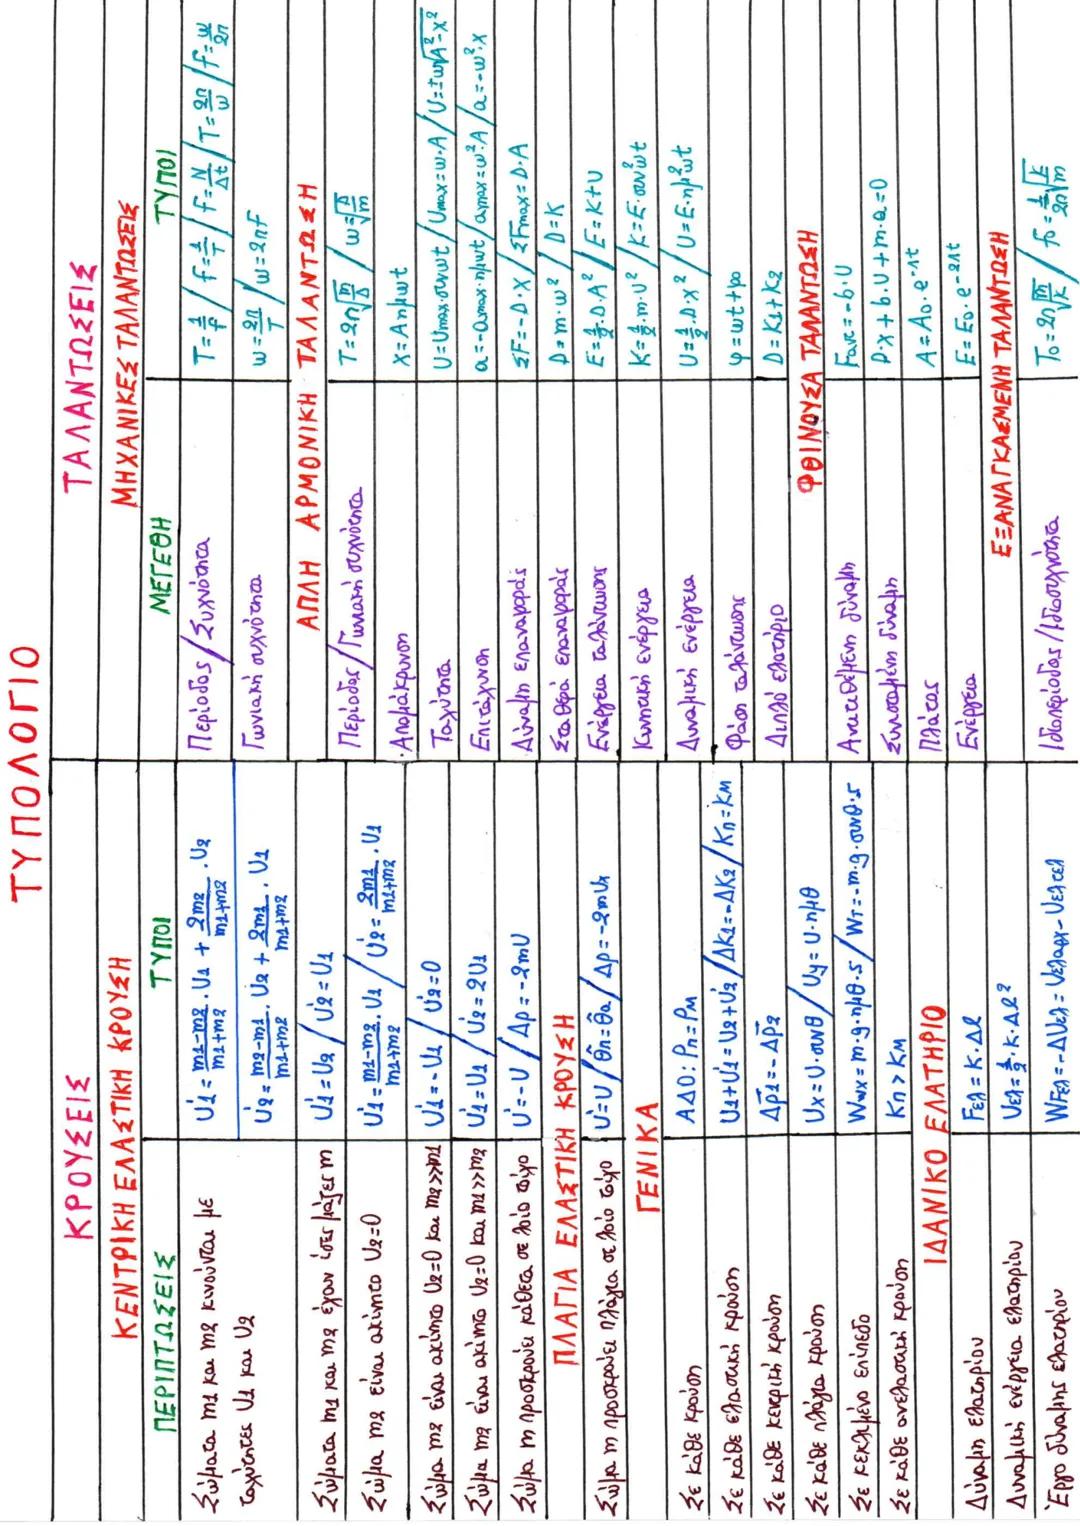 ΤΥΠΟΛΟΓΙΟ
ΚΡΟΥΣΕΙΣ
ΚΕΝΤΡΙΚΗ ΕΛΑΣΤΙΚΗ ΚΡΟΥΣΗ
ΠΕΡΙΠΤΩΣΕΙΣ ΤΥΠΟΙ
Σώματα m1 και m2 κινούνται με U1' = (m1-m2)/(m1+m2) · U1 + 2m2/(m1+m2) · U2
ταχύτητες U1 και U2 U2' = (m2-m1)/(m1+m2) · U2 + 2m1/(m1+m2) · U1
Σώματα m1 και m2 έχουν ίσες μάζες m U1' = U2 / U2' = U1
Σώμα m2 είναι ακίνητο U2=0 U1' = (m1-m2)/(m1+m2) · U1 / U2' = 2m1/(m1+m2) · U1
Σώμα m2 είναι ακίνητο U2=0 και m2>>m1 U1' = -U1 / U2' = 0
Σώμα m2 είναι ακίνητο U2=0 και m1>>m2 U1' = U1 / U2' = 2U1
Σώμα m προσκρούει κάθετα σε λείο τοίχο U' = -U / Δp = -2mU
ΠΛΑΓΙΑ ΕΛΑΣΤΙΚΗ ΚΡΟΥΣΗ
Σώμα m προσκρούει πλάγια σε λείο τοίχο U' = U / θ̂π = θ̂α / Δp = -2mUx
ΓΕΝΙΚΑ
Σε κάθε κρούση ΑΔΟ: Pπ = Pμ
Σε κάθε ελαστική κρούση U1+U1' = U2+U2' / ΔK1 = -ΔK2 / Kπ = Kμ
Σε κάθε κεντρική κρούση Δp̄1 = -Δp̄2
Σε κάθε πλάγια κρούση Ux = U·συνθ / Uy = U·ημθ
Σε κεκλιμένο επίπεδο Wwx = m·g·ημθ·s / WT = -m·g·συνθ·s
Σε κάθε ανελαστική κρούση Kπ > Kμ
ΙΔΑΝΙΚΟ ΕΛΑΤΗΡΙΟ
Δύναμη ελατηρίου Fελ = K·Δl
Δυναμική ενέργεια ελατηρίου Uελ = 1/2·K·Δl²
Έργο δύναμης ελατηρίου WFελ = -ΔUελ = Uελαρχ - Uελτελ
ΤΑΛΑΝΤΩΣΕΙΣ
ΜΗΧΑΝΙΚΕΣ ΤΑΛΑΝΤΩΣΕΙΣ
ΜΕΓΕΘΗ ΤΥΠΟΙ
Περίοδος / Συχνότητα T = 1/f / f = 1/T / f = N/Δt / T = 2π/ω / f = ω/2π
Γωνιακή συχνότητα ω = 2π/T / ω = 2πf
ΑΠΛΗ ΑΡΜΟΝΙΚΗ ΤΑΛΑΝΤΩΣΗ
Περίοδος / Γωνιακή συχνότητα T = 2π√(m/D) / ω = √(D/m)
Απομάκρυνση x = Aημωt
Ταχύτητα U = Umax·συνωt / Umax = ω·A / U = ±ω√(A²-x²)
Επιτάχυνση a = -amax·ημωt / amax = ω²·A / a = -ω²·x
Δύναμη επαναφοράς ΣF = -D·x / ΣFmax = D·A
Σταθερά επαναφοράς D = m·ω² / D = K
Ενέργεια ταλάντωσης E = 1/2·D·A² / E = K+U
Κινητική ενέργεια K = 1/2·m·U² / K = E·συν²ωt
Δυναμική ενέργεια U = 1/2·D·x² / U = E·ημ²ωt
Φάση ταλάντωσης φ = ωt+φο
Διπλό ελατήριο D = K1+K2
ΦΘΙΝΟΥΣΑ ΤΑΛΑΝΤΩΣΗ
Αντιτιθέμενη δύναμη Fαντ = -b·U
Συνισταμένη δύναμη Dx+b·U+m·a=0
Πλάτος A = A0·e^-Λt
Ενέργεια E = E0·e^-2Λt
ΕΞΑΝΑΓΚΑΣΜΕΝΗ ΤΑΛΑΝΤΩΣΗ
Ιδιοπερίοδος / Ιδιοσυχνότητα T0 = 2π√(m/k) / f0 = 1/2π √(k/m)